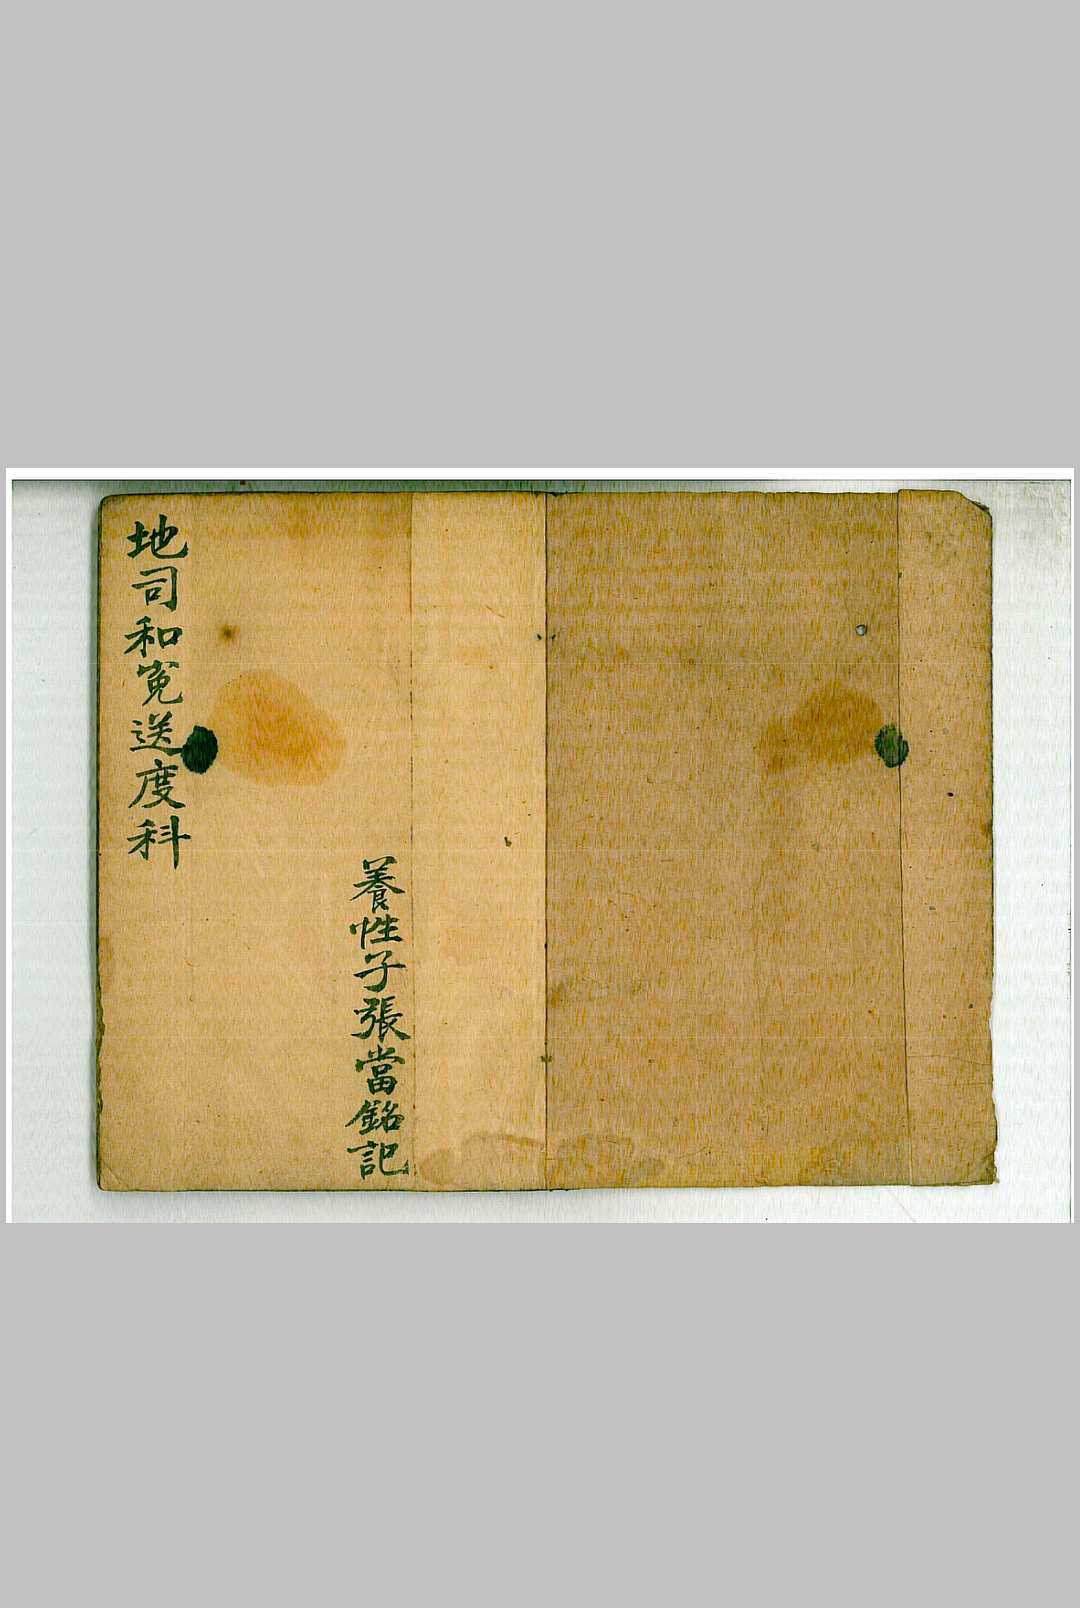 養性子張當銘記
地司和寃送度科